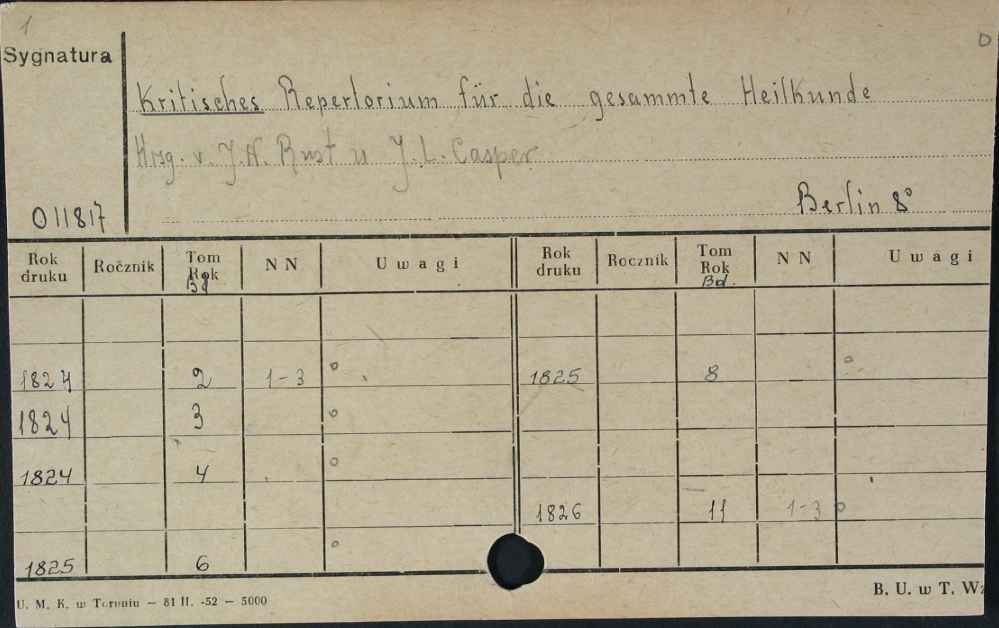 1
D
Sygnatura
Kritisches Repertorium für die gesammte Heilkunde
Hrsg. v. J. N. Rust u J. L. Casper
Berlin 8°
011817
Rok druku Rocznik Tom Rok Bd. NN Uwagi Rok druku Rocznik Tom Rok Bd. NN Uwagi
1824 2 1-3 ° 1825 8 °
1824 3 °
1824 4 °
1826 11 1-3 °
1825 6 °
U. M. K. w Toruniu — 81 II. -52 — 5000
B. U. w T.